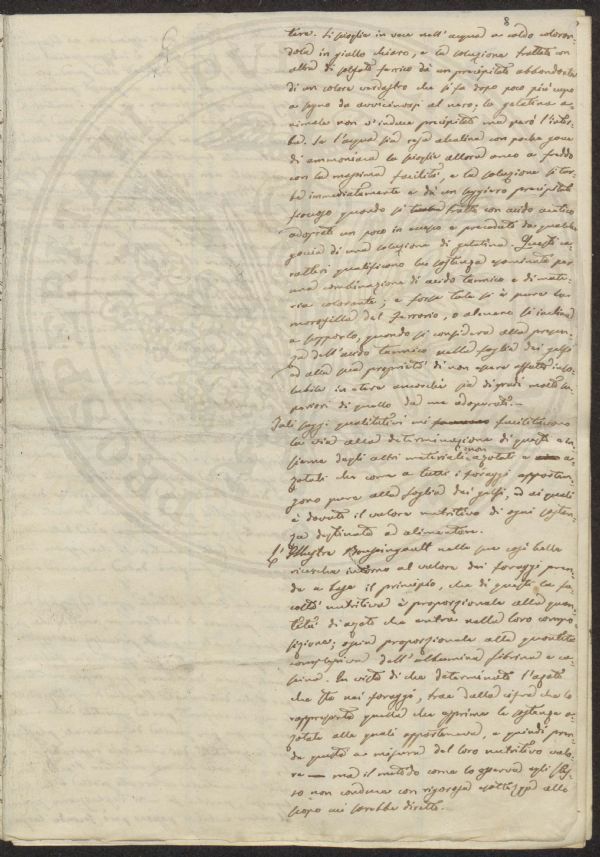 8
tare. Si scioglie in vece nell'acqua a caldo coloran-
dola in giallo chiaro, e la soluzione trattata con
altra di solfato ferrico dà un precipitato abbondante
di un colore verdastro che si fa dopo poco più cupo
a segno da avvicinarsi al nero; la gelatina a-
nimale non v'induce precipitato ma però l'intor-
ba. Se l'acqua sia resa alcalina con poche gocce
di ammoniaca la scioglie allora anco a freddo
con la massima facilità, e la soluzione si tor-
ba immediatamente e dà un leggiero precipitato
fioccoso quando si tratta con acido acetico
adoprato un poco in eccesso e preceduto da qualche
goccia di una soluzione di gelatina. Questi ca-
ratteri qualificono la sostanza esaminata per
una combinazione di acido tannico e di mate-
ria colorante; e forse tale si è pure la
del , o almeno si inclina
a supporlo, quando si consideri alla presen-
za dell'acido tannico nella foglia dei gelsi
ed alla sua proprietà di non essere affatto inso-
lubile in etere ancorchè sia di gradi molto su-
periori di quello da me adoperato.
Tali saggi qualitativi mi facilitarono
la via alla determinazione di questi e in-
sieme degli altri materiali non azotati e a-
zotati che come a tutti i foraggi apparten-
gono pure alla foglia dei gelsi, ed ai quali
è dovuto il valore nutritivo di ogni sostan-
za destinata ad alimentare.
L'illustre Boussingault nelle sue così belle
ricerche intorno al valore dei foraggi pren-
de a base il principio, che di questi la fa-
coltà nutritiva è proporzionale alla quan-
tità di azoto che entra nella loro compo-
sizione; ossia proporzionale alla quantità
complessiva dell'albumina fibrina e ca-
seina. In vista di che determinato l'azoto
che sta nei foraggi, trae dalla cifra che lo
rappresenta quella che esprime le sostanze a-
zotate alle quali apparteneva, e quindi pren-
de questa a misura del loro nutritivo valo-
re — ma il metodo come lo osserva egli stes-
so non conduce con rigorosa esattezza allo
scopo cui sarebbe diretto.